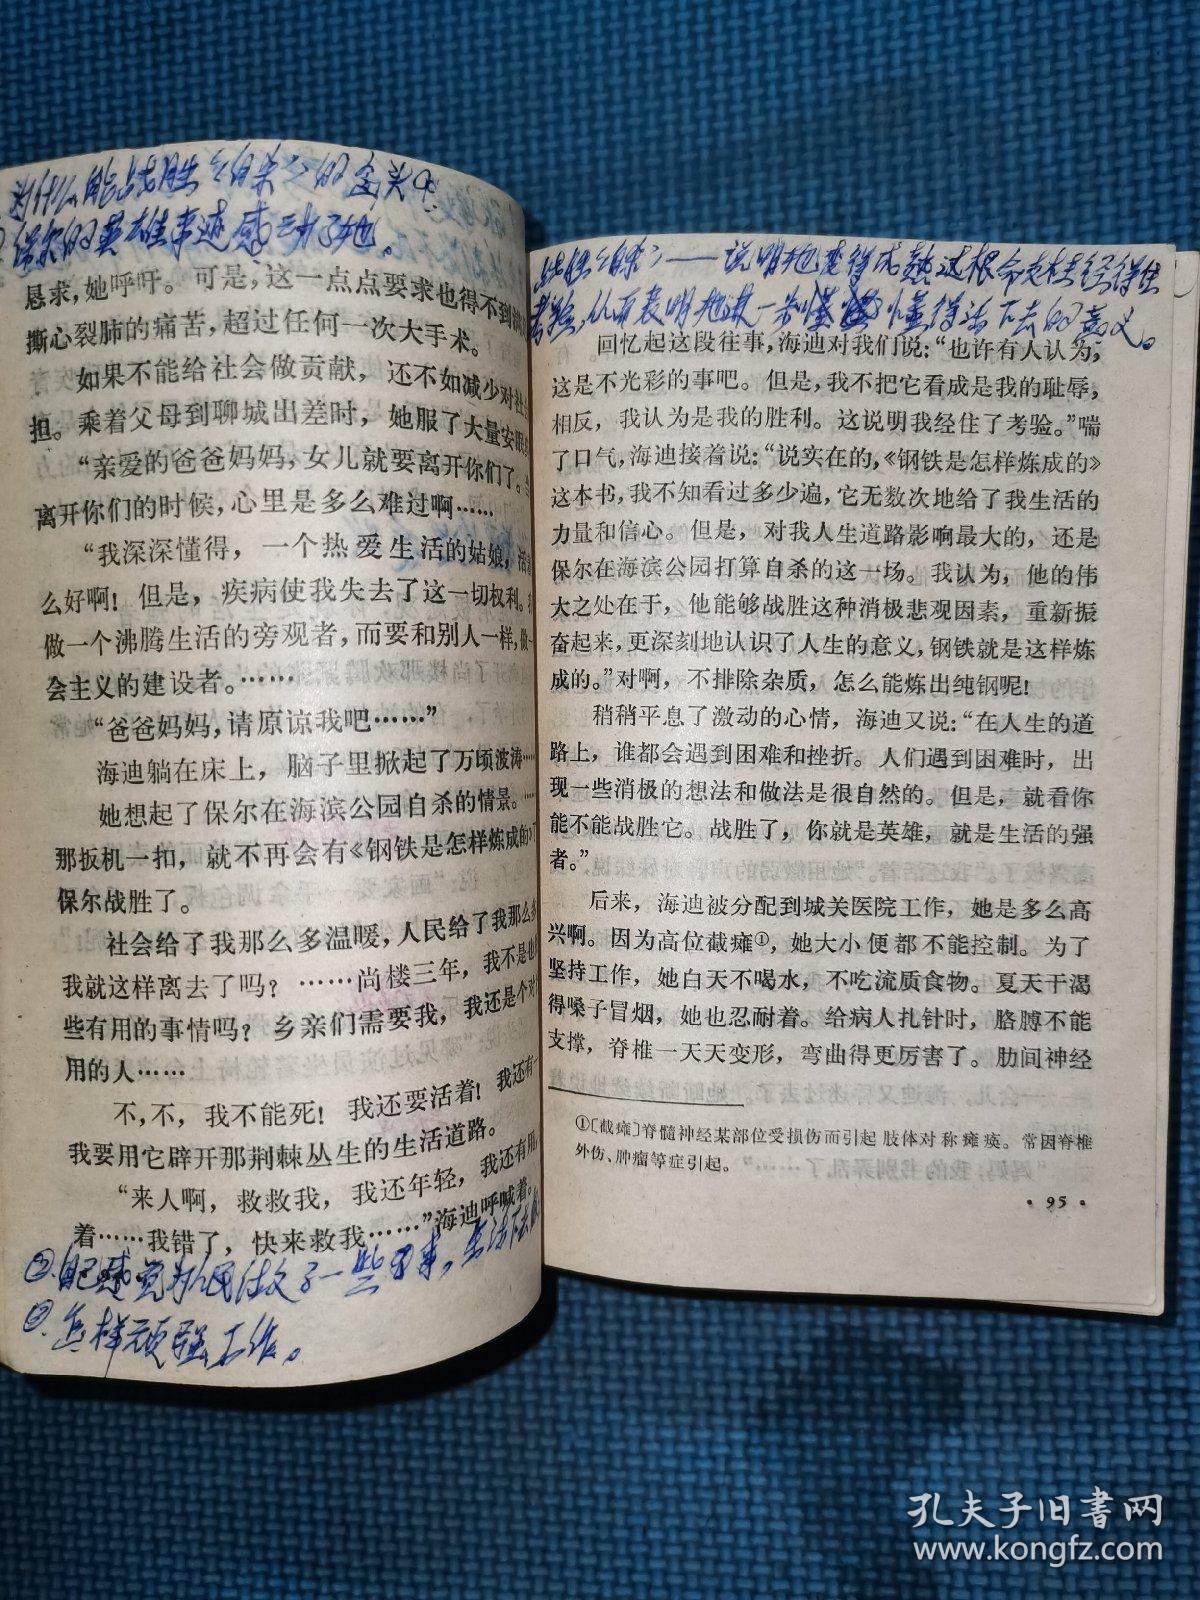 为什么能战胜《自杀》的念头？
保尔的英雄事迹感动了她。
恳求,她呼吁。可是,这一点点要求也得不到
撕心裂肺的痛苦,超过任何一次大手术。
如果不能给社会做贡献,还不如减少对社
担。乘着父母到聊城出差时,她服了大量安眠
“亲爱的爸爸妈妈,女儿就要离开你们了。
离开你们的时候,心里是多么难过啊……
“我深深懂得,一个热爱生活的姑娘,活
么好啊!但是,疾病使我失去了这一切权利。
做一个沸腾生活的旁观者,而要和别人一样,做一
会主义的建设者。……
“爸爸妈妈,请原谅我吧……”
海迪躺在床上,脑子里掀起了万顷波涛……
她想起了保尔在海滨公园自杀的情景。……
那扳机一扣,就不再会有《钢铁是怎样炼成的》
保尔战胜了。
社会给了我那么多温暖,人民给了我那么多
我就这样离去了吗?……尚楼三年,我不是也
些有用的事情吗?乡亲们需要我,我还是个对
用的人……
不,不,我不能死!我还要活着!我还有一
我要用它辟开那荆棘丛生的生活道路。
“来人啊,救救我,我还年轻,我还有用,
着……我错了,快来救我……”海迪呼喊着。
②.自己感觉为人民仕文了一些事,生活下去
③.怎样顽强工作。
战胜《自杀》——说明她变得成熟过 经得住
考验,从而表明她进一步懂得活下去的意义。
回忆起这段往事,海迪对我们说:“也许有人认为,
这是不光彩的事吧。但是,我不把它看成是我的耻辱,
相反,我认为是我的胜利。这说明我经住了考验。”喘
了口气,海迪接着说:“说实在的,《钢铁是怎样炼成的》
这本书,我不知看过多少遍,它无数次地给了我生活的
力量和信心。但是,对我人生道路影响最大的,还是
保尔在海滨公园打算自杀的这一场。我认为,他的伟
大之处在于,他能够战胜这种消极悲观因素,重新振
奋起来,更深刻地认识了人生的意义,钢铁就是这样炼
成的。”对啊,不排除杂质,怎么能炼出纯钢呢!
稍稍平息了激动的心情,海迪又说:“在人生的道
路上,谁都会遇到困难和挫折。人们遇到困难时,出
现一些消极的想法和做法是很自然的。但是,就看你
能不能战胜它。战胜了,你就是英雄,就是生活的强
者。”
后来,海迪被分配到城关医院工作,她是多么高
兴啊。因为高位截瘫①,她大小便都不能控制。为了
坚持工作,她白天不喝水,不吃流质食物。夏天干渴
得嗓子冒烟,她也忍耐着。给病人扎针时,胳膊不能
支撑,脊椎一天天变形,弯曲得更厉害了。肋间神经
①〔截瘫〕脊髓神经某部位受损伤而引起肢体对称瘫痪。常因脊椎
外伤、肿瘤等症引起。
·95·
孔夫子旧书网
www.kongfz.com